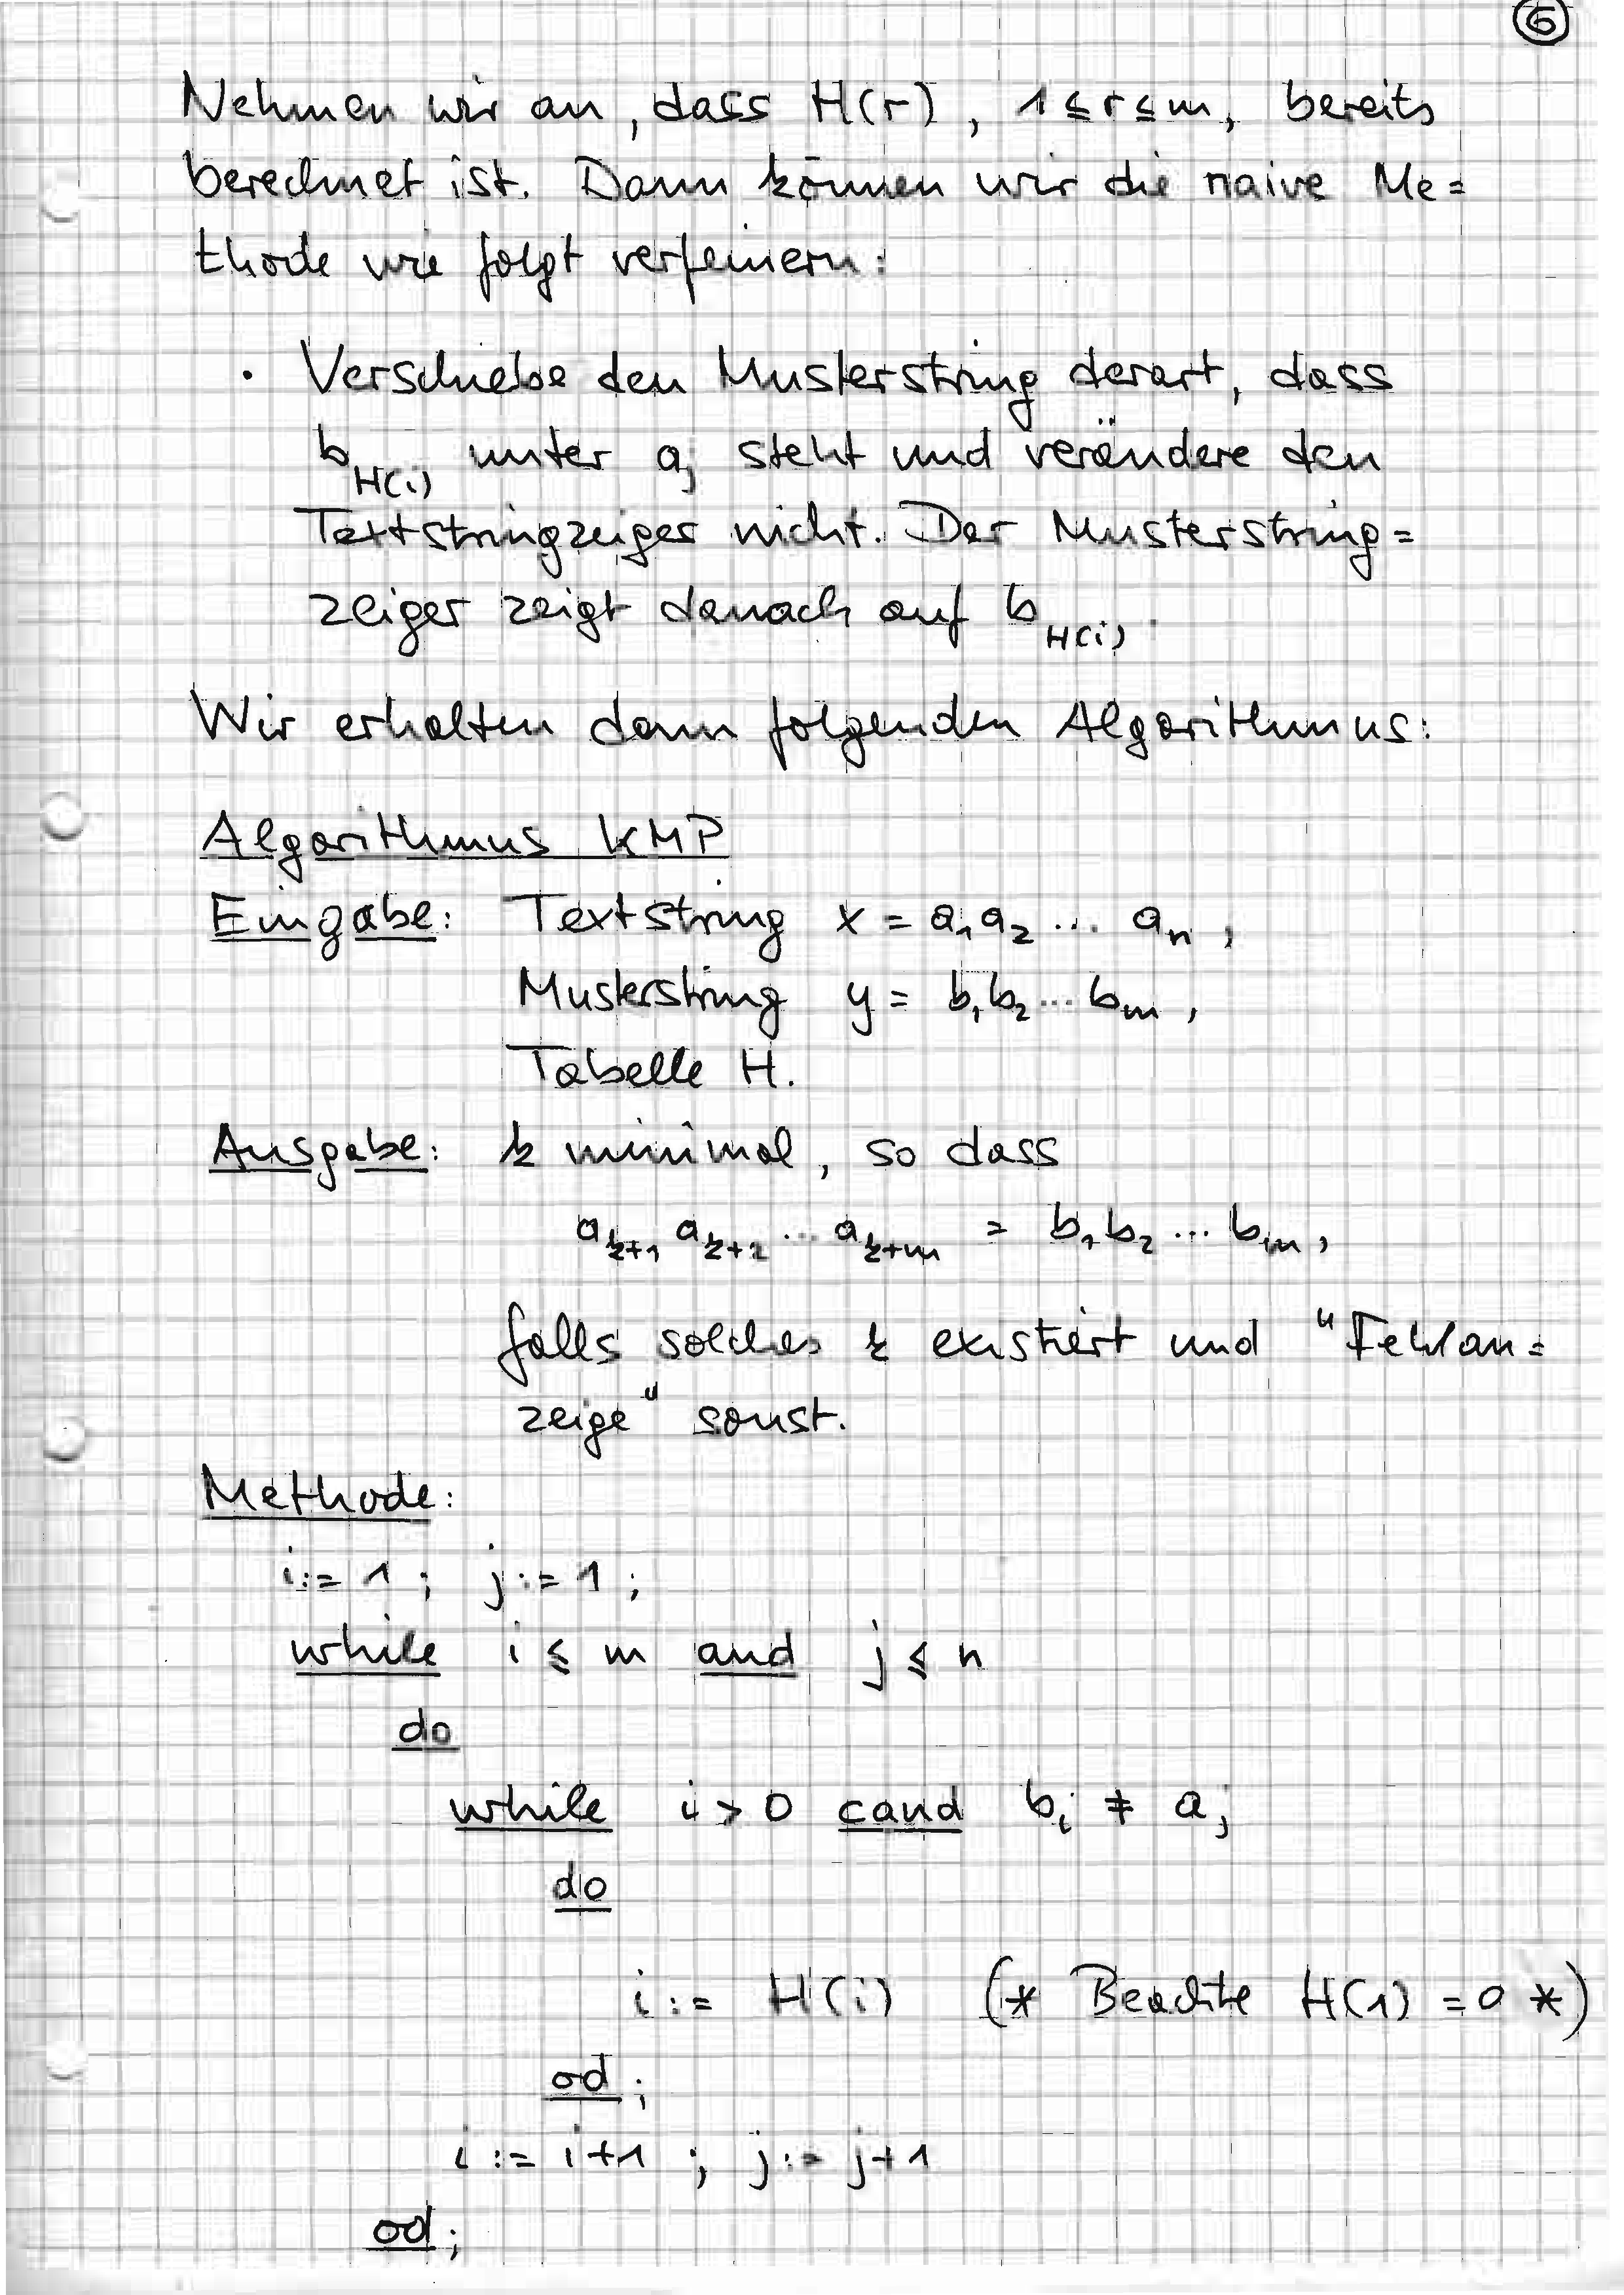 6
Nehmen wir an, dass H(r), 1 ≤ r ≤ m, bereits
berechnet ist. Dann können wir die naive Me=
thode wie folgt verfeinern:
· Verschiebe den Musterstring derart, dass
b_H(i) unter a_j steht und verändere den
Textstringzeiger nicht. Der Musterstring=
zeiger zeigt danach auf b_H(i).
Wir erhalten dann folgenden Algorithmus:
Algorithmus KMP
Eingabe: Textstring x = a₁a₂ ... aₙ,
Musterstring y = b₁b₂ ... bₘ,
Tabelle H.
Ausgabe: k minimal, so dass
a_k+1 a_k+2 ... a_k+m = b₁b₂ ... bₘ,
falls solches k existiert und "Fehlan=
zeige" sonst.
Methode:
i := 1 ; j := 1 ;
while i ≤ m and j ≤ n
do
while i > 0 cand b_i ≠ a_j
do
i := H(i) (* Beachte H(1) = 0 *)
od ;
i := i+1 ; j := j+1
od ;